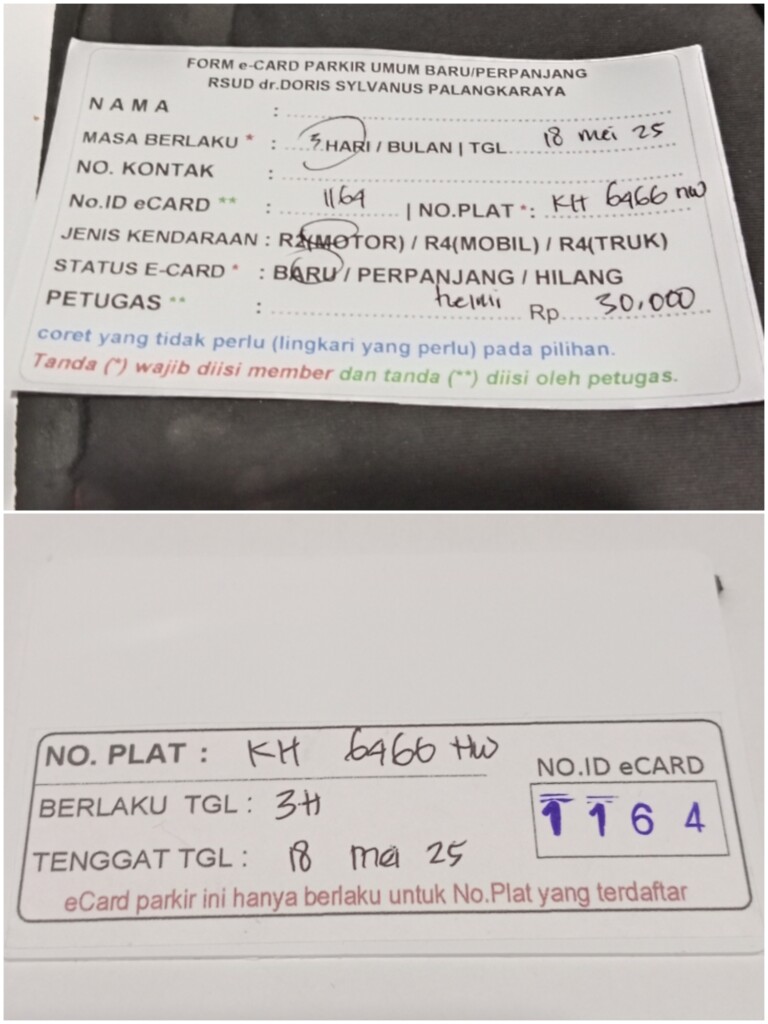 FORM e-CARD PARKIR UMUM BARU/PERPANJANG
RSUD dr.DORIS SYLVANUS PALANGKARAYA
NAMA :
MASA BERLAKU * : 3 HARI / BULAN | TGL 18 mei 25
NO. KONTAK :
No.ID eCARD ** : 1164 | NO.PLAT *: KH 6466 HW
JENIS KENDARAAN : R2(MOTOR) / R4(MOBIL) / R4(TRUK)
STATUS E-CARD * : BARU / PERPANJANG / HILANG
PETUGAS ** : Rp. 30.000
coret yang tidak perlu (lingkari yang perlu) pada pilihan.
Tanda (*) wajib diisi member dan tanda (**) diisi oleh petugas.
NO. PLAT : KH 6466 HW
NO.ID eCARD
BERLAKU TGL : 3H
1164
TENGGAT TGL : 18 mei 25
eCard parkir ini hanya berlaku untuk No.Plat yang terdaftar